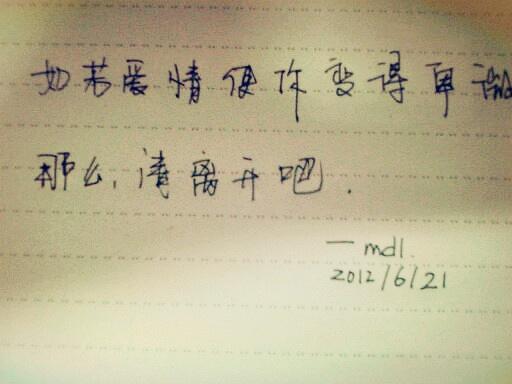 如若爱情使你变得卑
那么,请离开吧.
—mdl.
2012/6/21